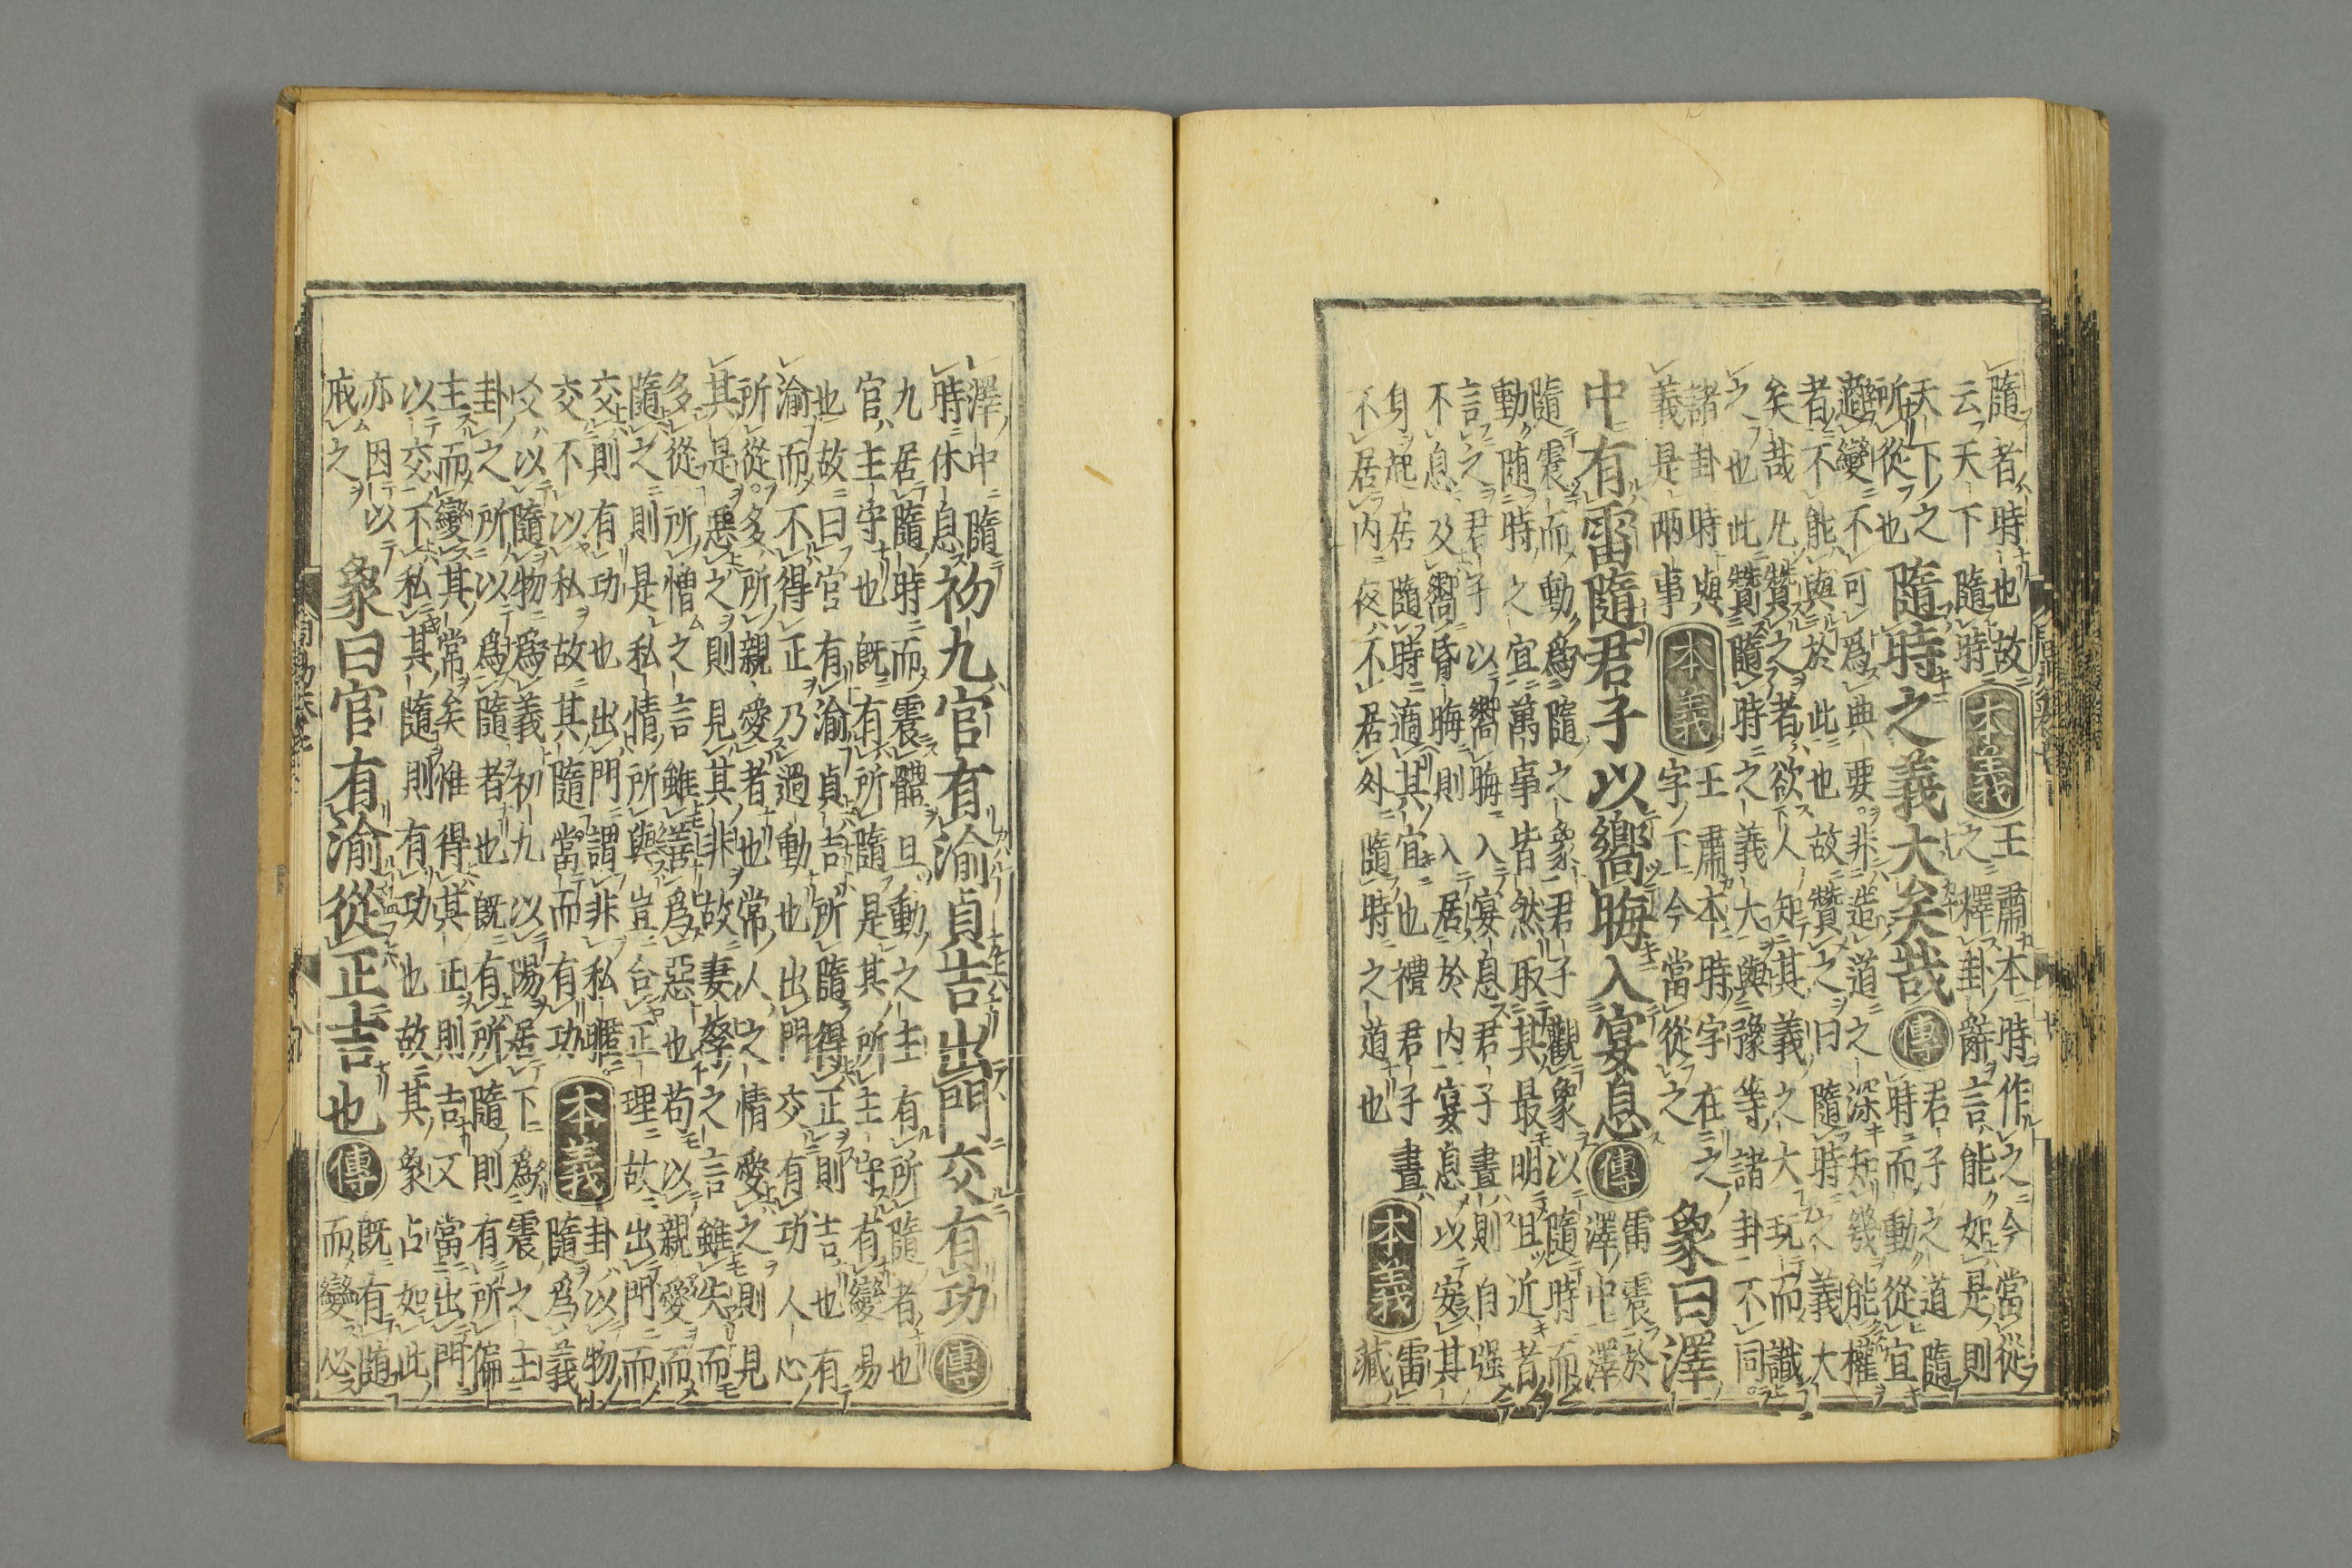 隨者時也故本義王肅本時作之今當從
云天下隨時之釋卦辭言能如是則
天下之
所從也
隨時之義大矣哉傳
君子之道隨
時而動從宜
適變不可爲典要非造道之深知幾能權
者不能與於此也故贊之曰隨時之義大
矣哉凡贊之者欲人知其義之大玩而識
之也此贊隨時之義大與豫等諸卦不同
諸卦時與
義是兩事
本義
王肅本時字在之
字下今當從之
象曰澤
中有雷隨君子以嚮晦入宴息傳
雷震於
澤中澤
隨震而動爲隨之象君子觀象以隨時而
動隨時之宜萬事皆然取其最明且近者
言之君子以嚮晦入宴息君子晝則自强
不息及嚮昏晦則入居於内宴息以安其
身起居隨時適其宜也禮君子晝
不居内夜不居外隨時之道也
本義
雷
藏
澤中隨
時休息
初九官有渝貞吉出門交有功傳
九居隨時而震體且動之主有所隨者也
官主守也既有所隨是其所主守有變易
也故曰官有渝貞吉所隨得正則吉也有
渝而不得正乃過動也出門交有功人心
所從多所親愛者也常人之情愛之則見
其是惡之則見其非故妻孥之言雖失而
多從所憎之言雖善爲惡也苟以親愛而
隨之則是私情所與豈合正理故出門而
交則有功也出門謂非私暱
交不以私故其隨當而有功
本義
卦以物
隨爲義
爻以隨物爲義初九以陽居下爲震之主
卦之所以爲隨者也既有所隨則有所偏
主而變其常矣惟得其正則吉又當出門
以交不私其隨則有功也故其象占如此
亦因以
戒之
象曰官有渝從正吉也傳
既有隨
而變必